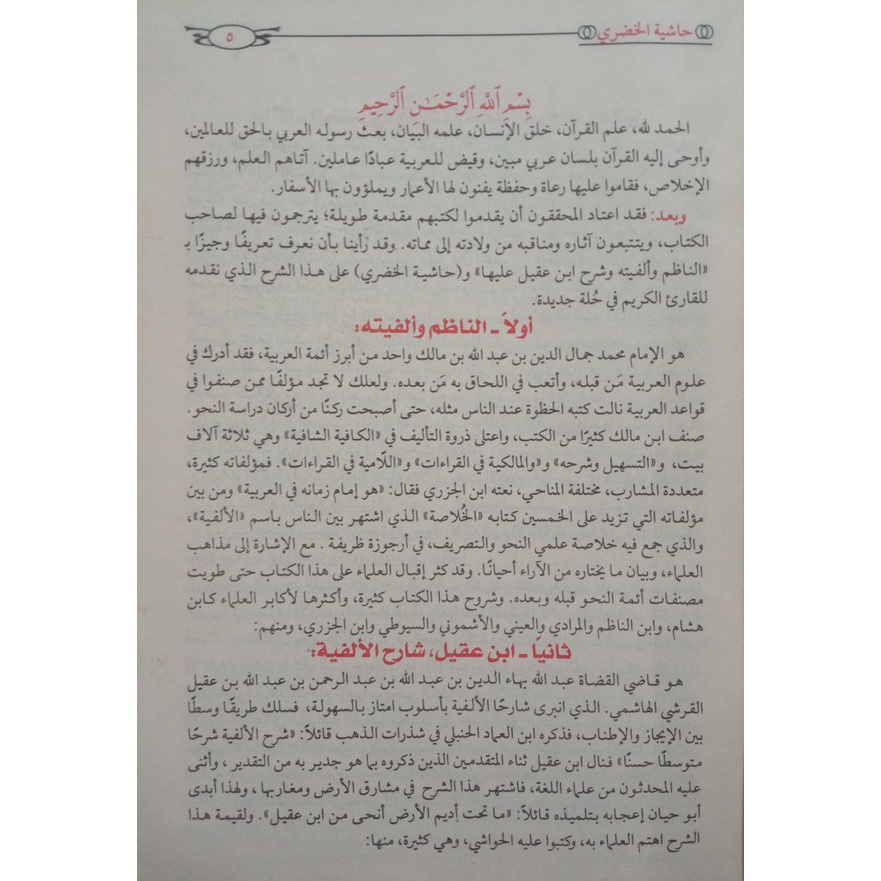 حاشية الخضري ٥
بِسْمِ ٱللَّهِ ٱلرَّحْمَـٰنِ ٱلرَّحِيمِ
الحمد لله، علم القرآن، خلق الإنسان، علمه البيان، بعث رسوله العربي بالحق للعالمين،
وأوحى إليه القرآن بلسان عربي مبين، وقيض للعربية عبادًا عاملين. آتاهم العلم، ورزقهم
الإخلاص، فقاموا عليها رعاة وحفظة يفنون لها الأعمار ويملؤون بها الأسفار.
وبعد: فقد اعتاد المحققون أن يقدموا لكتبهم مقدمة طويلة؛ يترجمون فيها لصاحب
الكتاب، ويتتبعون آثاره ومناقبه من ولادته إلى مماته. وقد رأينا بأن نعرف تعريفًا وجيزًا بـ
«الناظم وألفيته وشرح ابن عقيل عليها» و(حاشية الخضري) على هذا الشرح الذي نقدمه
للقارئ الكريم في حُلة جديدة.
أولاً ـ الناظم وألفيته:
هو الإمام محمد جمال الدين بن عبد الله بن مالك واحد من أبرز أئمة العربية، فقد أدرك في
علوم العربية مَن قبله، وأتعب في اللحاق به مَن بعده. ولعلك لا تجد مؤلفًا ممن صنفوا في
قواعد العربية نالت كتبه الحظوة عند الناس مثله، حتى أصبحت ركنًا من أركان دراسة النحو.
صنف ابن مالك كثيرًا من الكتب، واعتلى ذروة التأليف في «الكافية الشافية» وهي ثلاثة آلاف
بيت، و«التسهيل وشرحه» و«المالكية في القراءات» و«اللّامية في القراءات». فمؤلفاته كثيرة،
متعددة المشارب، مختلفة المناحي، نعته ابن الجزري فقال: «هو إمام زمانه في العربية» ومن بين
مؤلفاته التي تزيد على الخمسين كتابه «الخُلاصة» الذي اشتهر بين الناس باسم «الألفية»،
والذي جمع فيه خلاصة علمي النحو والتصريف، في أرجوزة ظريفة . مع الإشارة إلى مذاهب
العلماء، وبيان ما يختاره من الآراء أحيانًا. وقد كثر إقبال العلماء على هذا الكتاب حتى طويت
مصنفات أئمة النحو قبله وبعده. وشروح هذا الكتاب كثيرة، وأكثرها لأكابر العلماء كابن
هشام، وابن الناظم والمرادي والعيني والأشموني والسيوطي وابن الجزري، ومنهم:
ثانياً ـ ابن عقيل، شارح الألفية:
هو قاضي القضاة عبد الله بهاء الدين بن عبد الله بن عبد الرحمن بن عبد الله بن عقيل
القرشي الهاشمي. الذي انبرى شارحًا الألفية بأسلوب امتاز بالسهولة، فسلك طريقًا وسطًا
بين الإيجاز والإطناب، فذكره ابن العماد الحنبلي في شذرات الذهب قائلاً: «شرح الألفية شرحًا
متوسطًا حسنًا» فنال ابن عقيل ثناء المتقدمين الذين ذكروه بما هو جدير به من التقدير ، وأثنى
عليه المحدثون من علماء اللغة، فاشتهر هذا الشرح في مشارق الأرض ومغاربها ، ولهذا أبدى
أبو حيان إعجابه بتلميذه قائلاً: «ما تحت أديم الأرض أنحى من ابن عقيل». ولقيمة هذا
الشرح اهتم العلماء به، وكتبوا عليه الحواشي، وهي كثيرة، منها: